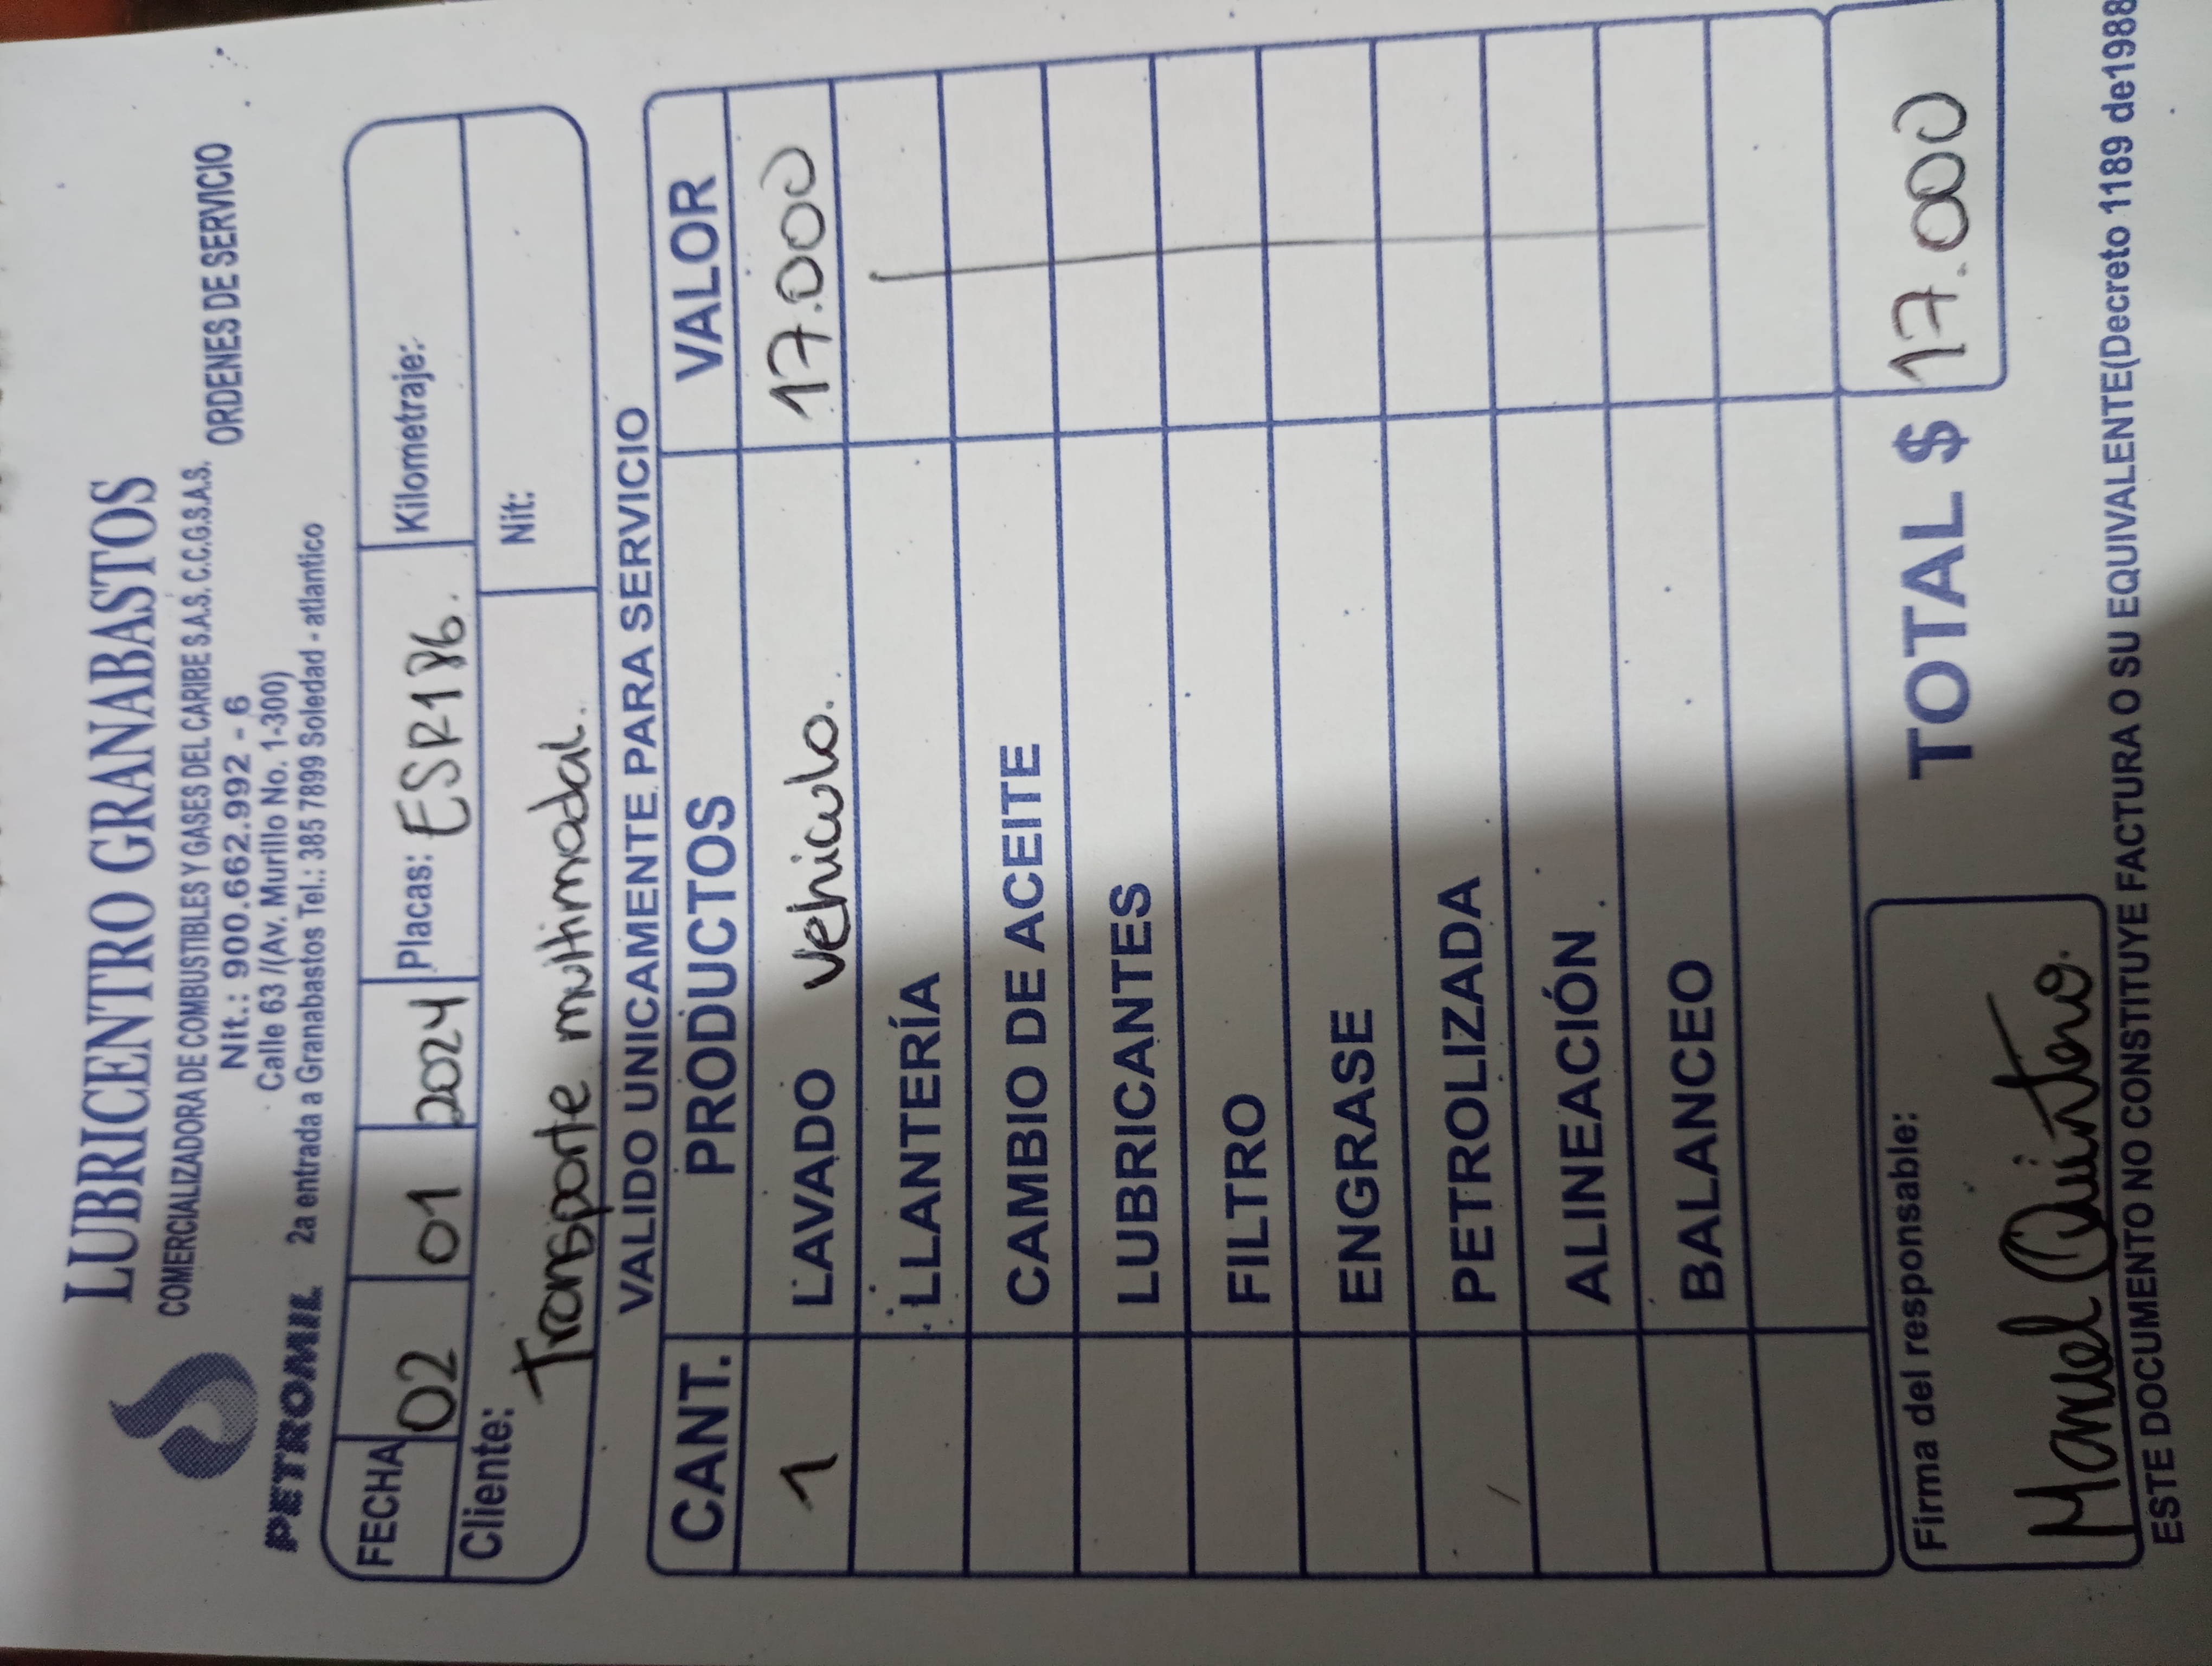 LUBRICENTRO GRANABASTOS
COMERCIALIZADORA DE COMBUSTIBLES Y GASES DEL CARIBE S.A.S. C.C.G.S.A.S.
Nit.: 900.662.992 - 6
ORDENES DE SERVICIO
Calle 63 /(Av. Murillo No. 1-300)
PETROMIL
2a entrada a Granabastos Tel.: 385 7899 Soledad - atlantico
FECHA 02 01 2024 Placas: ESR186. Kilometraje:
Cliente: Transporte multimodal. Nit:
VALIDO UNICAMENTE PARA SERVICIO
CANT. PRODUCTOS VALOR
1 LAVADO vehiculo. 17.000
LLANTERÍA
CAMBIO DE ACEITE
LUBRICANTES
FILTRO
ENGRASE
PETROLIZADA
ALINEACIÓN
BALANCEO
Firma del responsable:
TOTAL $ 17.000
Manuel Quintero.
ESTE DOCUMENTO NO CONSTITUYE FACTURA O SU EQUIVALENTE(Decreto 1189 de1988